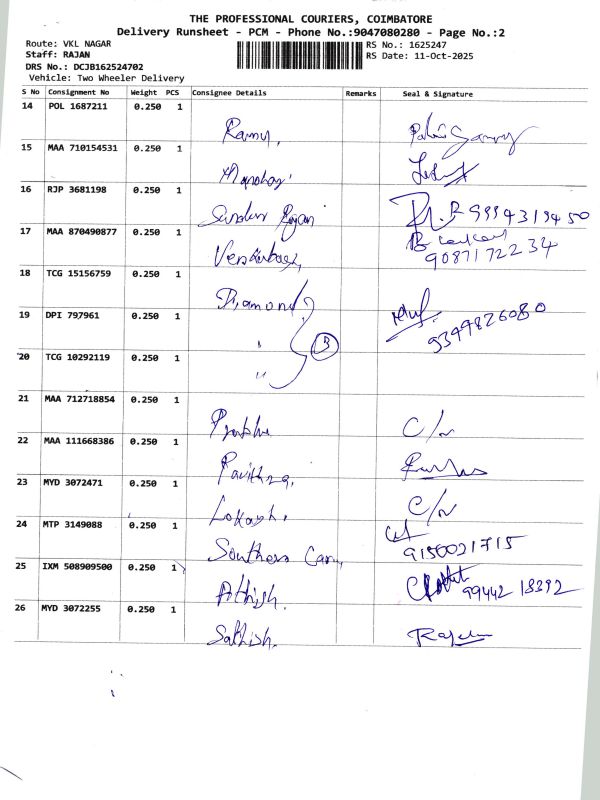 THE PROFESSIONAL COURIERS, COIMBATORE
Delivery Runsheet - PCM - Phone No.:9047080280 - Page No.:2
Route: VKL NAGAR RS No.: 1625247
Staff: RAJAN RS Date: 11-Oct-2025
DRS No.: DCJB162524702
Vehicle: Two Wheeler Delivery
S No Consignment No Weight PCS Consignee Details Remarks Seal & Signature
14 POL 1687211 0.250 1 Ramu,
15 MAA 710154531 0.250 1 Manohar
16 RJP 3681198 0.250 1 Sundar Rajan 9994319450
17 MAA 870490877 0.250 1 9087172234
18 TCG 15156759 0.250 1 Diamond
19 DPI 797961 0.250 1 " 3 9399826080
20 TCG 10292119 0.250 1 "
21 MAA 712718854 0.250 1 Prabhu C/n
22 MAA 111668386 0.250 1 Pavithra,
23 MYD 3072471 0.250 1 Lokesh. C/n
24 MTP 3149088 0.250 1 Southern 9150021715
25 IXM 508909500 0.250 1 Athish. 99442 18392
26 MYD 3072255 0.250 1 Sathish.